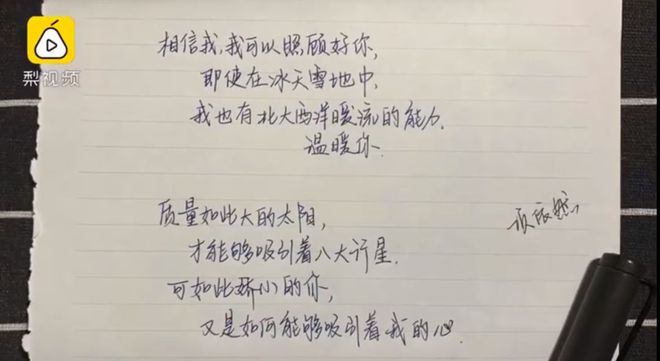 梨视频
相信我,我可以照顾好你,
即使在冰天雪地中,
我也有北大西洋暖流的能力,
温暖你.
质量如此大的太阳,
才能够吸引着八大行星.
可如此娇小的你,
又是如何能够吸引着我的心.